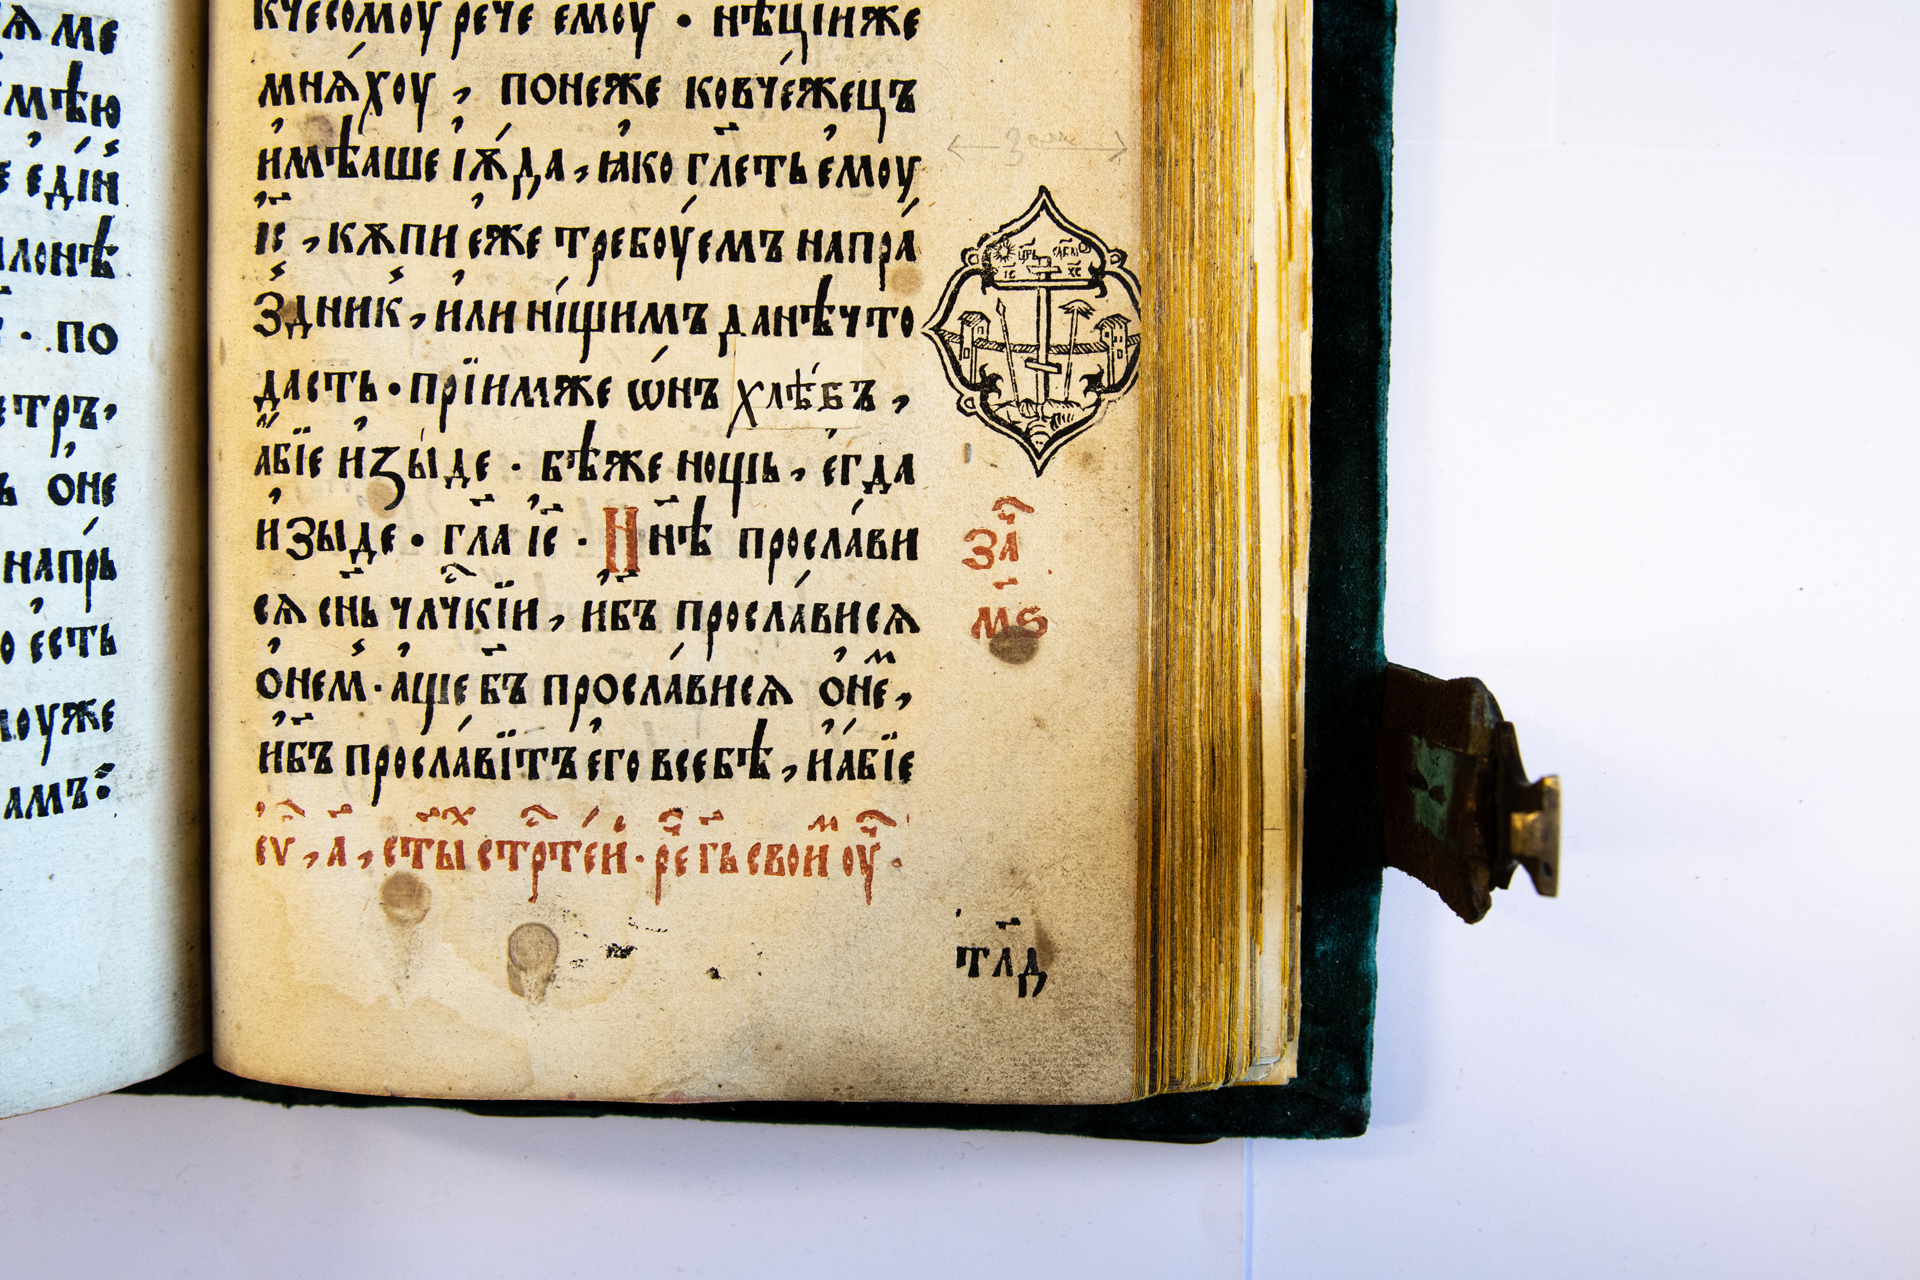 ѧме
мѣю
е едїн
лонѣ
по
етръ,
ъ ѻне
напрь
о есть
моуже
амъ:
кчесомоу рече емоу · нѣцїиже
мнѧхоу , понеже ковчежець
имѣаше їѫда, ꙗко гл҃еть емоу
і҃с , кѫпи еже требоуемъ напра
здник, или нїщимъ да нѣчто
дасть · прїимже ѡнъ хлѣбъ ,
абїе изыде · бѣже нощь , егда
изыде · гл҃а і҃с · Нн҃ѣ прослави
сѧ сн҃ь чл҃чкїи , иб҃ъ прослависѧ
ѻнем · аще б҃ъ прослависѧ ѻнем,
иб҃ъ прославїтъ его всебѣ , иабїе
еѵ , а҃ , ст҃ых стр҃тей · рече г҃ь своим оу҃ ·
3 см
цр҃ь слав꙽ы
і҃с х҃с
за҃
м҃ѕ
тл҃д